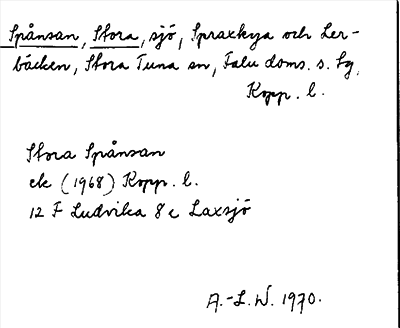 Spånsan, Stora, sjö, Spraxkya och Ler-
bäcken, Stora Tuna sn, Falu doms. s. tg,
Kopp. l.
Stora Spånsan
ek (1968) Kopp. l.
12 F Ludvika 8 c Laxsjö
A.-L. W. 1970.